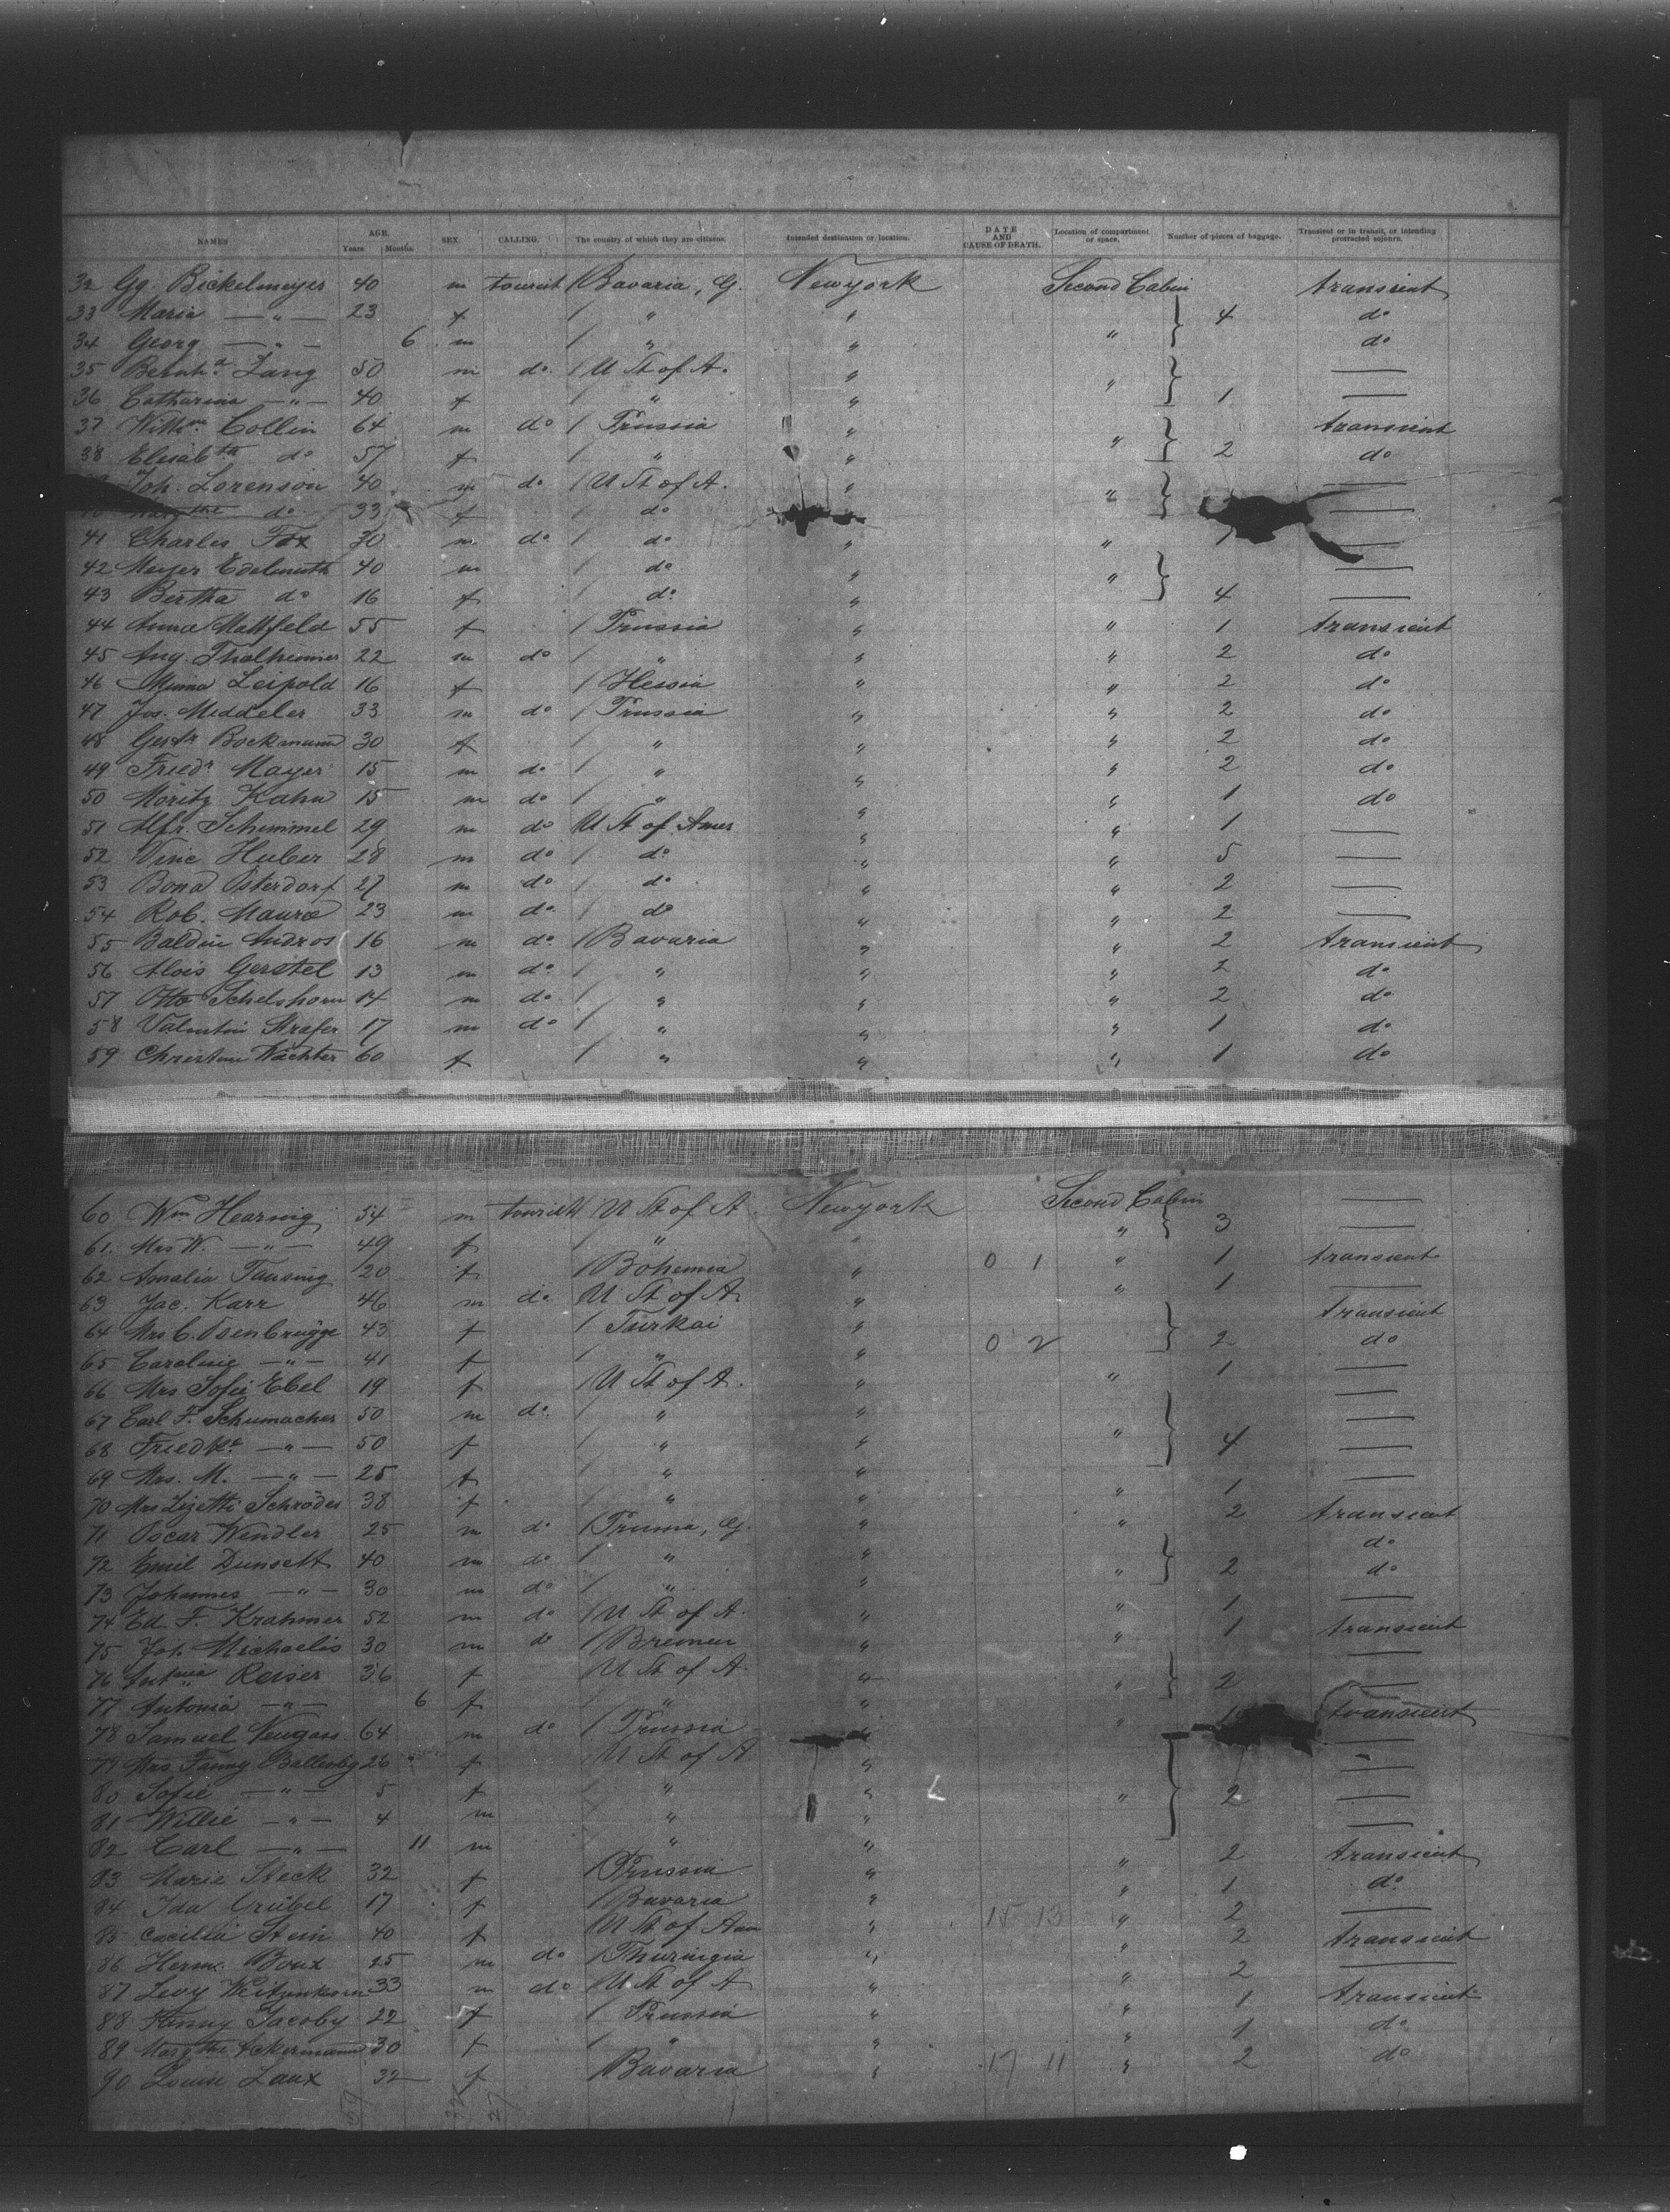 NAMES AGE. Years Months. SEX. CALLING. The country of which they are citizens. Intended destination or location. DATE AND CAUSE OF DEATH. Location of compartment or space. Number of pieces of baggage. Transient or in transit, or intending protracted sojourn.
32 Gg. Bickelmeyer 40 m tourist / Bavaria, G. Newyork Second Cabin transient
33 Maria — " — 23 f / " " 4 do
34 Georg — " — 6 m / " " " do
35 Bernhd. Lang 50 m do / U St of A. " —
36 Catharina — " — 40 f / " " " 1 —
37 Willm. Collin 64 m do / Prussia " transient
38 Elisabth do 57 f / " " " 2 do
Joh. Lorenson 40 m do / U St of A. " —
40 do 33 f / do " —
41 Charles Fox 30 m do / do " " 1 —
42 Meyer Edelmuth 40 m / do " " —
43 Bertha do 16 f / do " 4 —
44 Anna Mattfeld 55 f / Prussia " " 1 transient
45 Aug. Thalheimer 22 m do / " " " 2 do
46 Minna Leipold 16 f / Hessia " " 2 do
47 Jos. Middeler 33 m do / Prussia " " 2 do
48 Gertr Bockmann 30 f / " " " 2 do
49 Friedr Mayer 15 m do / " " " 2 do
50 Moritz Kahn 15 m do / " " " 1 do
51 Alfr. Schimmel 29 m do U St of Amer " " 1 —
52 Vinc Huber 28 m do / do " " 5 —
53 Bona Osterdorf 27 m do / do " " 2 —
54 Rob. 23 m do / do " " 2 —
55 Baldin Andros 16 m do / Bavaria " " 2 transient
56 Alois Gerstel 13 m do / " " " 2 do
57 Otto Schelshorn 14 m do / " " " 2 do
58 Valentin 17 m do / " " " 1 do
59 Wächter 60 f / " " " 1 do
60 Wm Hearnig 54 m tourist / U St of A. Newyork Second Cabin —
61. Mrs W. — " — 49 f / " " " 3 —
62 Amalia Tausing 20 f / Bohemia " 0 1 " 1 transient
63 Jac. Karr 46 m do U St of A. " " 1 —
64 Mrs C. Osenbrügge 43 f / Turkai " transient
65 Caroline — " — 41 f / " " 0 2 2 do
66 Mrs Sofie Ebel 19 f / U St of A. " " 1 —
67 Carl F. Schumacher 50 m do / " " —
68 Friedke — " — 50 f / " " " 4 —
69 Mrs. M. — " — 25 f / " " —
70 Mrs Lizette Schröder 38 f / " " " 1 —
71 Oscar Wendler 25 m do / G. " " 2 transient
72 Emil Dunselt 40 m do / " " do
73 Johannes — " — 30 m do / " " " 2 do
74 Ed. F. Krahmer 52 m do / U St of A. " " 1 —
75 Joh. Michaelis 30 m do / Bremen " " 1 transient
76 Reiser 36 f U St of A. " —
77 Antonia — " — 6 f / " " " 2 —
78 Samuel Neugass 64 m do / Prussia " transient
79 Mrs Fanny 26 f U St of A " —
80 Sofie — " — 5 f / " " —
81 Willie — " — 4 m / " " " 2 —
82 Carl — " — 11 m " " —
83 Marie Steck 32 f / Prussia " " 2 transient
84 Ida Grübel 17 f / Bavaria " " 1 do
85 Cacilia Stein 40 f U St of Am " 15 13 " 2 —
86 Herm. Boux 25 m do / Thuringia " " 2 transient
87 Levy Weitzenkorn 33 m do / U St of A " " 2 —
88 Jacoby 22 f / Prussia " " 1 transient
89 Margthe Ackermann 30 f / " " " 1 do
90 Louise Laux 32 f Bavaria " 17 11 " 2 do